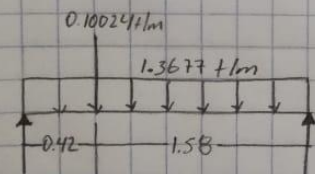 0.10024t/m
1.3677 t/m
0.42 1.58